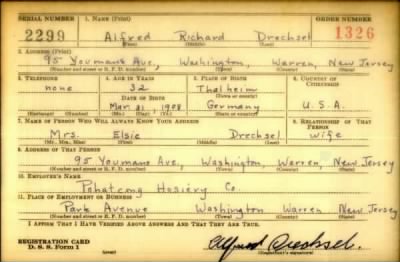 SERIAL NUMBER 1. NAME (Print) ORDER NUMBER
2299 Alfred Richard Drechsel 1326
(First) (Middle) (Last)
2. ADDRESS (Print)
95 Youmans Ave, Washington, Warren, New Jersey
(Number and street or R. F. D. number) (Town) (County) (State)
3. TELEPHONE 4. AGE IN YEARS 5. PLACE OF BIRTH 6. COUNTRY OF CITIZENSHIP
none 32 Thalheim
DATE OF BIRTH (Town or county)
Mar. 31, 1908 Germany U.S.A.
(Exchange) (Number) (Mo.) (Day) (Yr.) (State or country)
7. NAME OF PERSON WHO WILL ALWAYS KNOW YOUR ADDRESS 8. RELATIONSHIP OF THAT PERSON
Mrs. Elsie Drechsel wife
(Mr., Mrs., Miss) (First) (Middle) (Last)
9. ADDRESS OF THAT PERSON
95 Youmans Ave, Washington, Warren, New Jersey
(Number and street or R. F. D. number) (Town) (County) (State)
10. EMPLOYER'S NAME
Pohatcong Hosiery Co.
11. PLACE OF EMPLOYMENT OR BUSINESS
Park Avenue Washington Warren New Jersey
(Number and street or R. F. D. number) (Town) (County) (State)
I AFFIRM THAT I HAVE VERIFIED ABOVE ANSWERS AND THAT THEY ARE TRUE.
REGISTRATION CARD
D. S. S. Form 1 Alfred Drechsel.
(Registrant's signature)